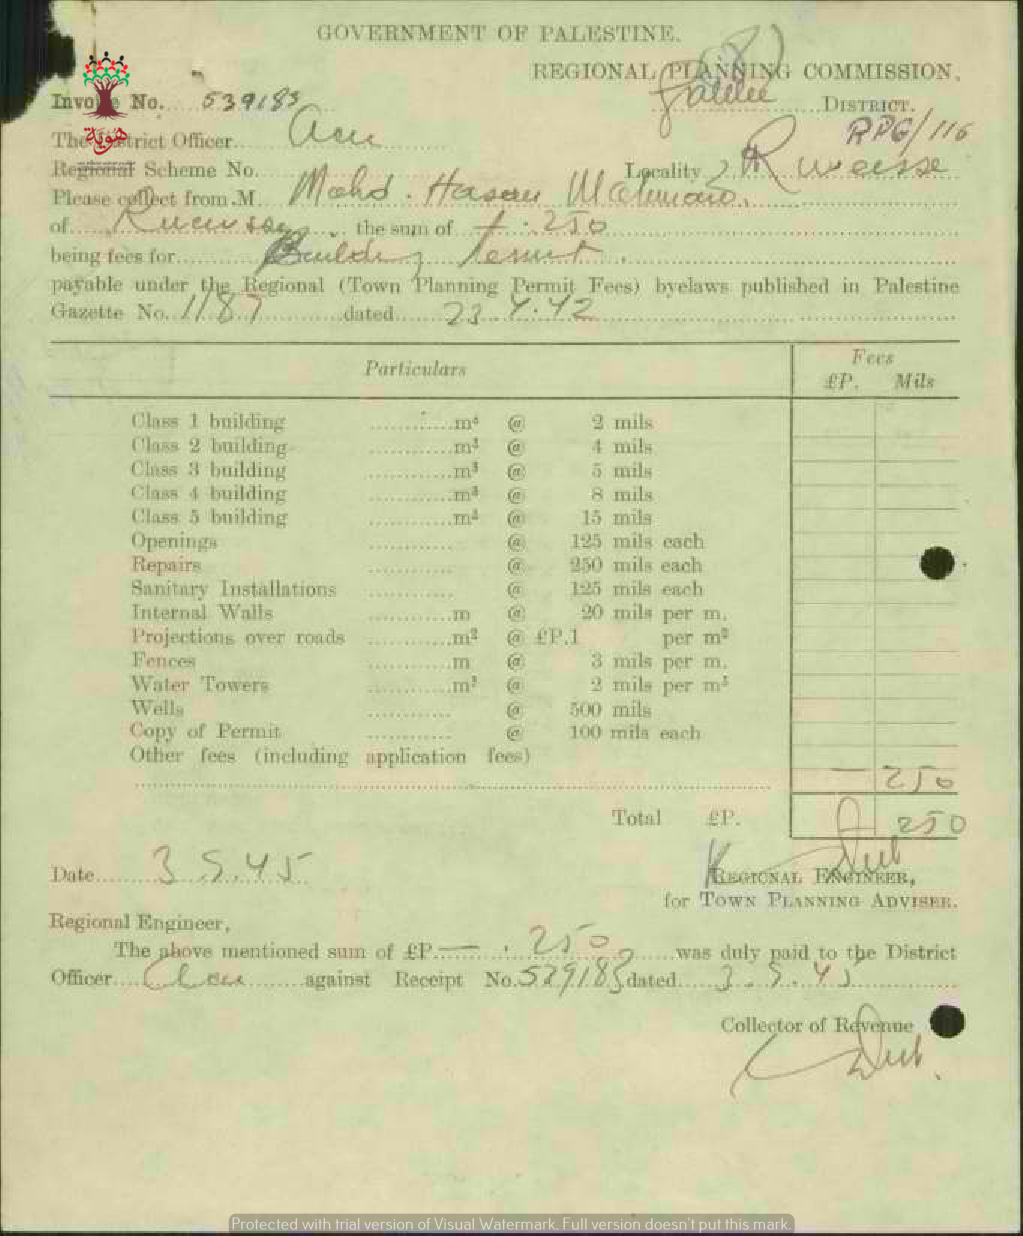 GOVERNMENT OF PALESTINE.
REGIONAL PLANNING COMMISSION,
Galilee DISTRICT.
Invoice No. 539183
RPG/116
The District Officer Acre
Regional Scheme No. Locality Rweisse
Please collect from M Mohd. Hasan Mahmoud.
of the sum of £ . 250
being fees for Building Permit.
payable under the Regional (Town Planning Permit Fees) byelaws published in Palestine
Gazette No. 1187 dated 23.4.42
Particulars Fees
£P. Mils
Class 1 building m³ @ 2 mils
Class 2 building m³ @ 4 mils
Class 3 building m³ @ 5 mils
Class 4 building m³ @ 8 mils
Class 5 building m³ @ 15 mils
Openings @ 125 mils each
Repairs @ 250 mils each
Sanitary Installations @ 125 mils each
Internal Walls m @ 20 mils per m.
Projections over roads m² @ £P.1 per m²
Fences m @ 3 mils per m.
Water Towers m³ @ 2 mils per m³
Wells @ 500 mils
Copy of Permit @ 100 mils each
Other fees (including application fees)
— 250
Total £P. 250
Date 3.5.45
REGIONAL ENGINEER,
for TOWN PLANNING ADVISER.
Regional Engineer,
The above mentioned sum of £P. — . 250 was duly paid to the District
Officer Acre against Receipt No. 539183 dated 3.5.45
Collector of Revenue
هوية
Protected with trial version of Visual Watermark. Full version doesn't put this mark.